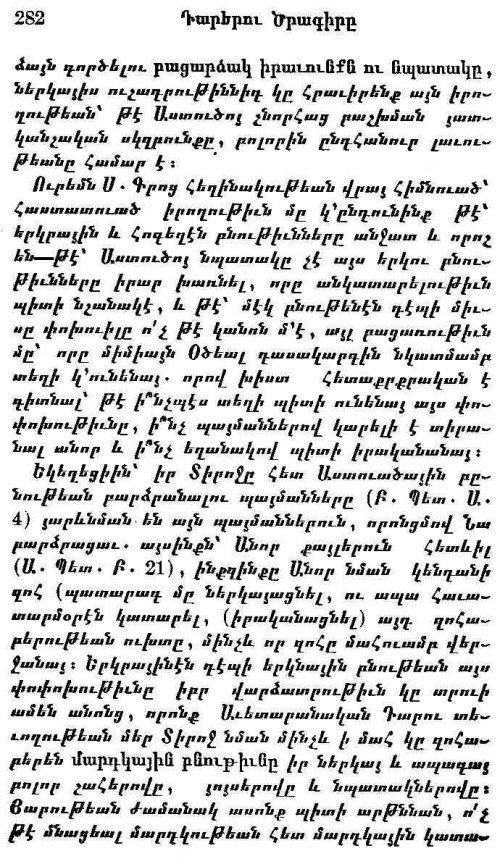 282 Դարերու Ծրագիրը
ձայն գործելու բացարձակ իրաւունքն ու նպատակը,
ներկայիս ուշադրութիւննիդ կը հրաւիրենք այն իրո-
ղութեան՝ թէ Աստուծոյ շնորհաց բաշխման յատ-
կանչական սկզբունքը, բոլորին ընդհանուր լաւու-
թեանը համար է։
Ուրեմն Ս. Գրոց հեղինակութեան վրայ հիմնուած՝
հաստատուած իրողութիւն մը կ՚ընդունինք թէ՝
երկրային և հոգեղէն բնութիւնները անջատ և որոշ
են—թէ՝ Աստուծոյ նպատակը չէ այս երկու բնու-
թիւնները իրար խառնել, որը անկատարելութիւն
պիտի նշանակէ, և թէ՝ մէկ բնութենէն դէպի միւ-
սը փոխուիլը ո՛չ թէ կանոն մ՚է, այլ բացառութիւն
մը՝ որը միմիայն Օծեալ դասակարգին նկատմամբ
տեղի կ՚ունենայ. որով խիստ հետաքրքրական է
գիտնալ՝ թէ ի՞նչպէս տեղի պիտի ունենայ այս փո-
փոխութիւնը, ի՞նչ պայմաններով կարելի է տիրա-
նալ անոր և ի՞նչ եղանակով պիտի իրականանայ։
Եկեղեցիին՝ իր Տիրոջը հետ Աստուածային բը-
նութեան բարձրանալու պայմանները (Բ. Պետ. Ա.
4) յարևնման են այն պայմաններուն, որոնցմով Նա
բարձրացաւ. այսինքն՝ Անոր քայլերուն հետևիլ
(Ա. Պետ. Բ. 21), ինքզինքը Անոր նման կենդանի
զոհ (պատարագ մը ներկայացնել, ու ապա հաւա-
տարմօրէն կատարել, (իրականացնել) այդ զոհա-
բերութեան ուխտը, մինչև որ զոհը մահուամբ վեր-
ջանայ։ Երկրայինէն դէպի երկնային բնութեան այս
փոփոխութիւնը իբր վարձատրութիւն կը տրուի
ամեն անոնց, որոնք Աւետարանական Դարու տե-
ւողութեան մեր Տիրոջ նման մինչև ի մահ կը զոհա-
բերեն մարդկային բնութիւնը իր ներկայ և ապագայ
բոլոր շահերովը, յոյսերովը և նպատակներովը։
Յարութեան ժամանակ ասոնք պիտի արթննան, ո՛չ
թէ մնացեալ մարդկութեան հետ մարդկային կատա-